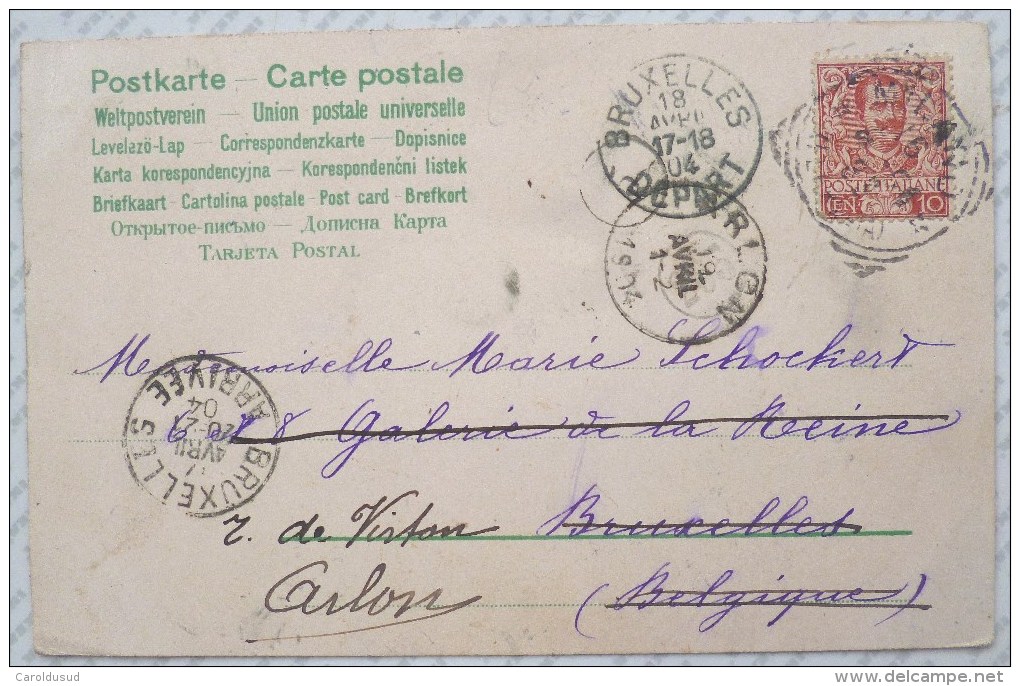 Postkarte – Carte postale
Weltpostverein – Union postale universelle
Levelező-Lap – Correspondenzkarte – Dopisnice
Karta korespondencyjna – Korespondenční listek
Briefkaart - Cartolina postale - Post card - Brefkort
Открытое-письмо – Дописна Карта
Tarjeta Postal
BRUXELLES
18
AVRIL
17-18
04
DEPART
ARLON
19
AVRIL
1-2
1904
POSTE ITALIANE
CEN 10
Mademoiselle Marie Schockert
6 et 8 Galerie de la Reine
r. de Virton Bruxelles
Arlon (Belgique)
BRUXELLES
AVRIL
20-21
04
ARRIVEE
© Caroldusud
delcampe.net